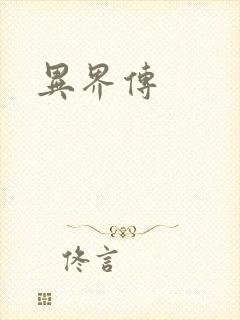 異界傳
佟言